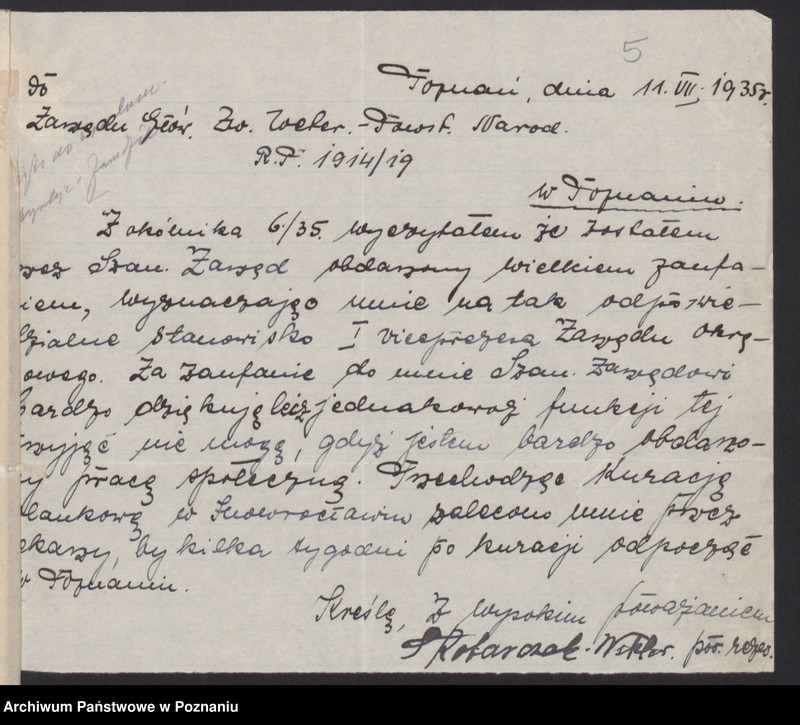 5
Do
Poznań, dnia 11. VII. 1935r.
Zarządu Głów. Zw. Weter. - Powst. Narod.
R.P. 1914/19
w Poznaniu.
Z okólnika 6/35. wyczytałem że zostałem
rzez Szan. Zarząd obdarzony wielkiem zaufa-
iem, wyznaczając mnie na tak odpowie-
dzialne stanowisko I viceprezesa Zarządu Okrę-
owego. Za zaufanie do mnie Szan. Zarządowi
bardzo dziękuję lecz jednakowoż funkcji tej
rzyjąć nie mogę, gdyż jestem bardzo obdarzo-
y pracą społeczną. Przechodząc kurację
lankową w Inowrocławiu zalecono mnie przez
ekarzy, by kilka tygodni po kuracji odpocząć
w Poznaniu.
Kreślę, z wysokim poważaniem
Kobarczak - Wiktor.
Archiwum Państwowe w Poznaniu